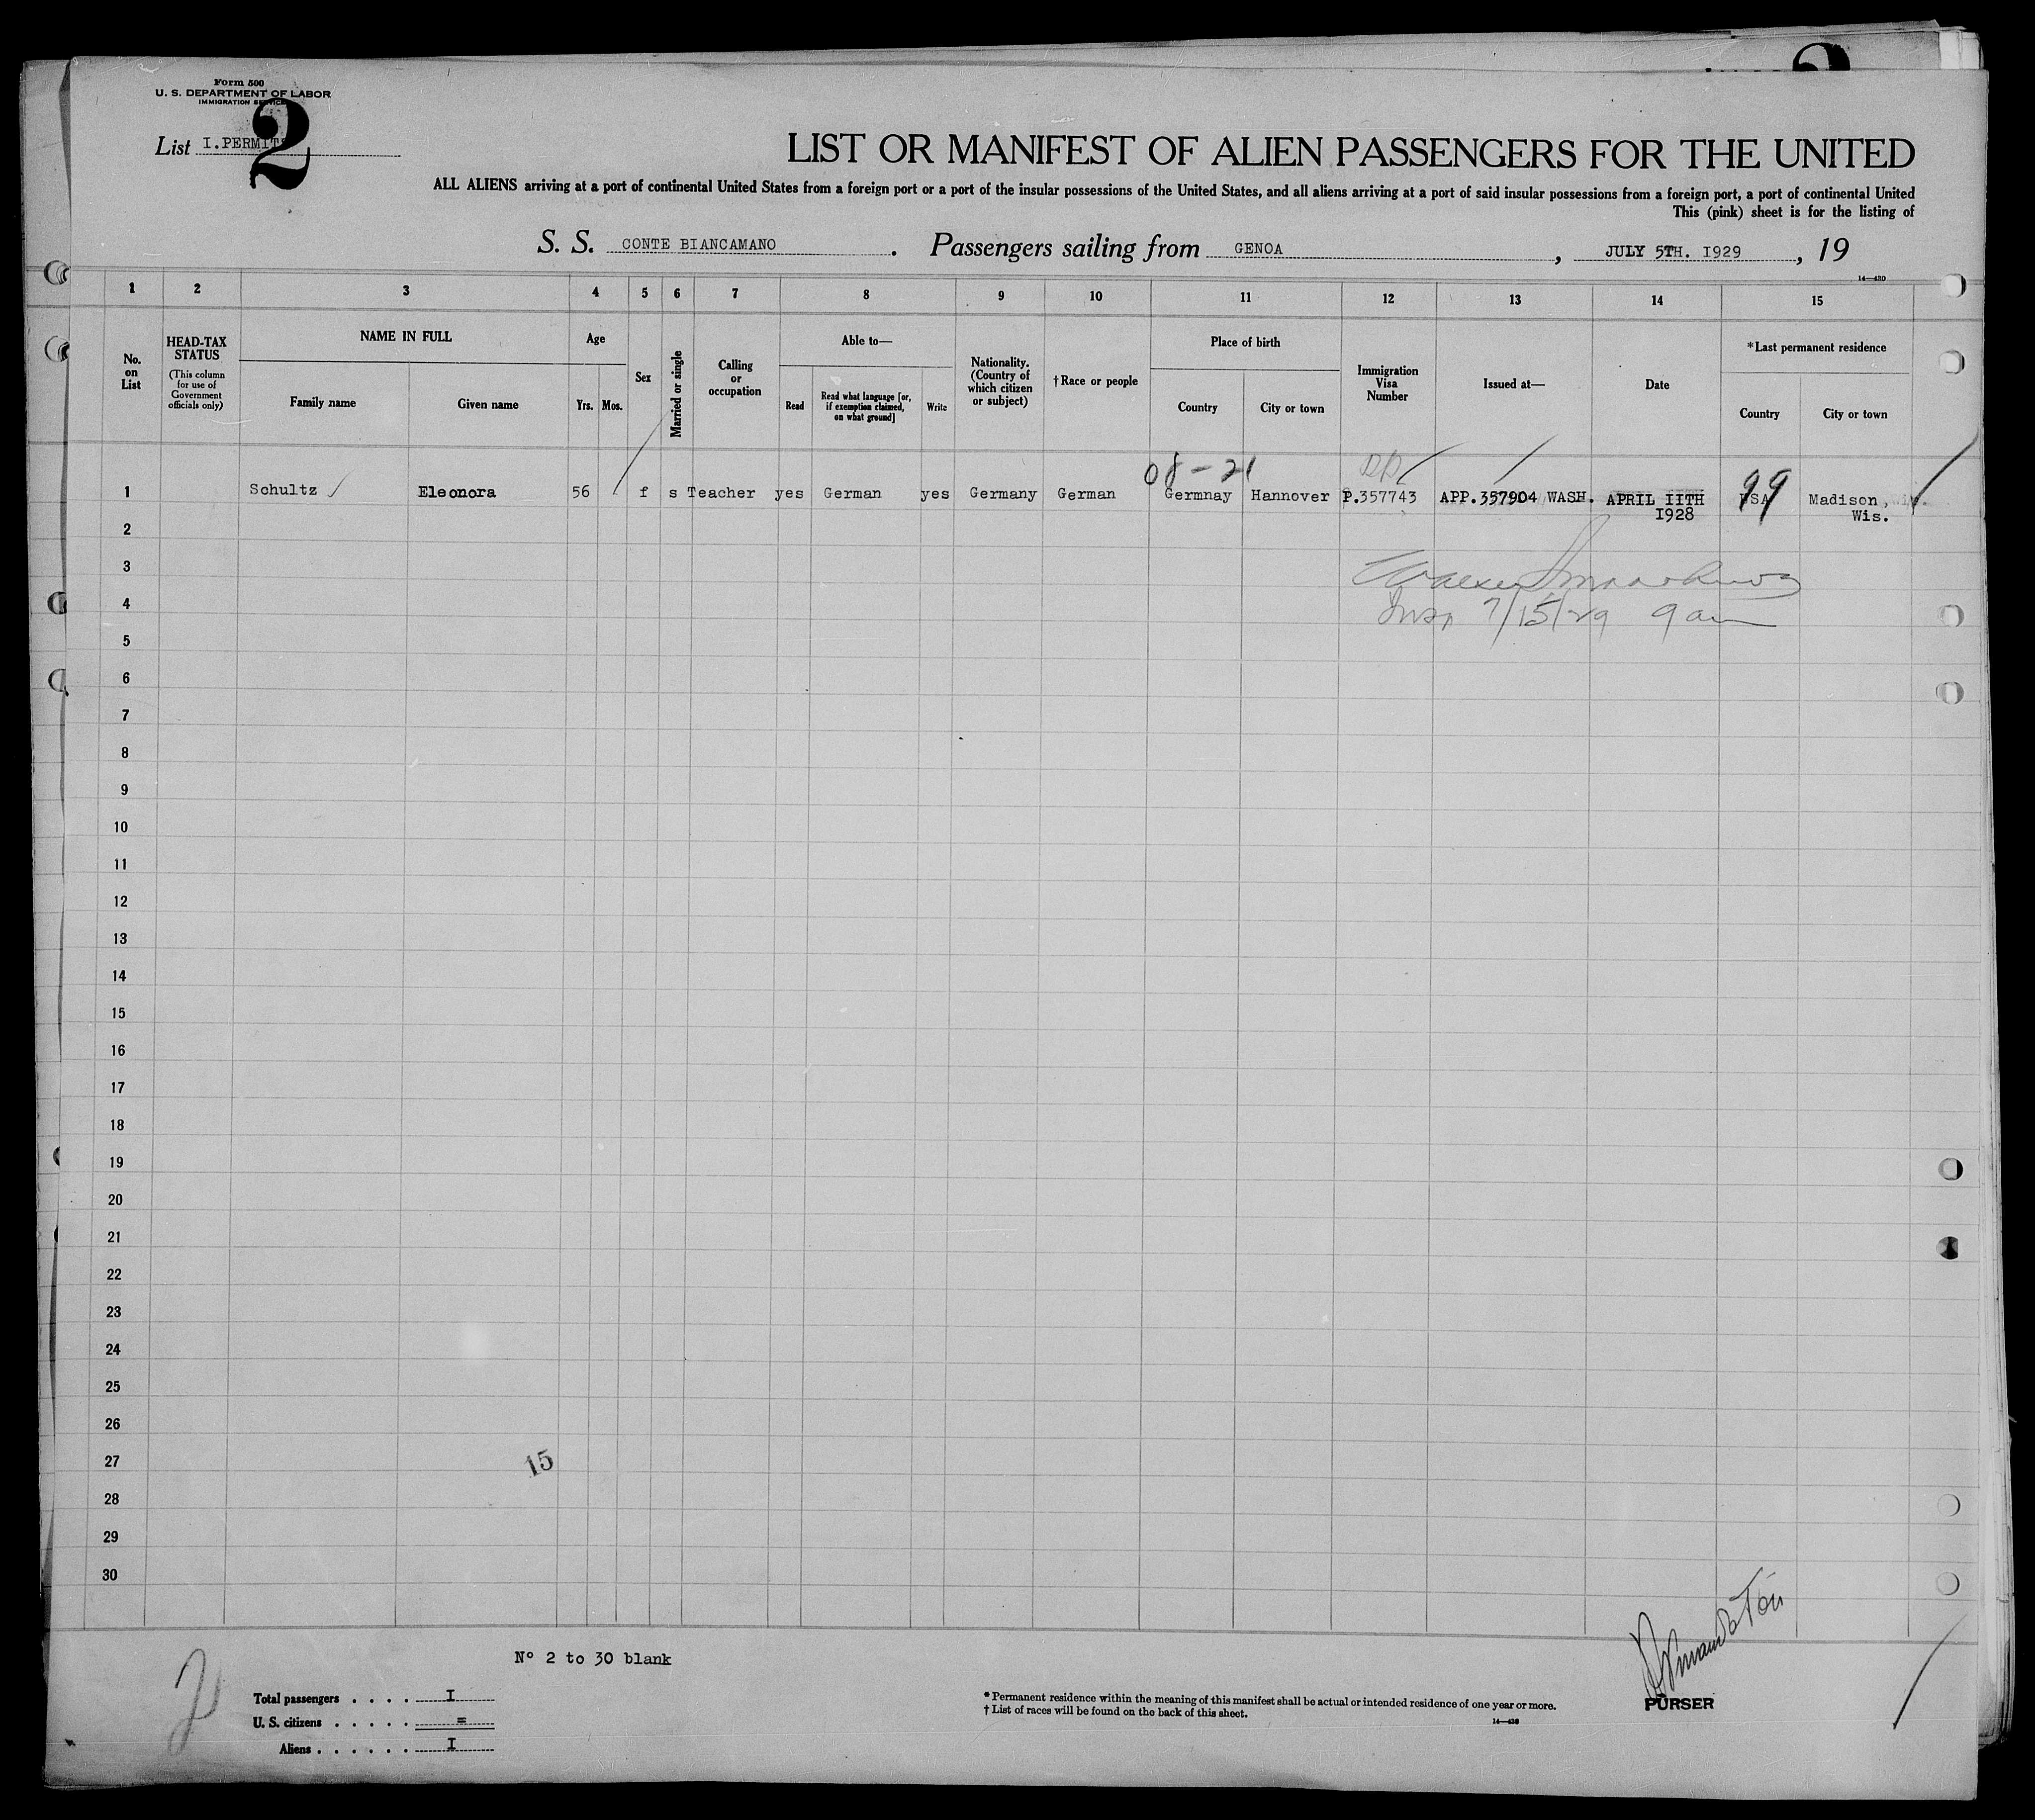 Form 500
U. S. DEPARTMENT OF LABOR
IMMIGRATION SERVICE
2
List I.PERMITS
LIST OR MANIFEST OF ALIEN PASSENGERS FOR THE UNITED
ALL ALIENS arriving at a port of continental United States from a foreign port or a port of the insular possessions of the United States, and all aliens arriving at a port of said insular possessions from a foreign port, a port of continental United
This (pink) sheet is for the listing of
S. S. CONTE BIANCAMANO. Passengers sailing from GENOA, JULY 5TH. I929, 19
14—430
1 2 3 4 5 6 7 8 9 10 11 12 13 14 15
No. on List
HEAD-TAX STATUS
(This column for use of Government officials only)
NAME IN FULL
Family name
Given name
Age
Yrs. Mos.
Sex
Married or single
Calling or occupation
Able to—
Read
Read what language [or, if exemption claimed, on what ground]
Write
Nationality. (Country of which citizen or subject)
†Race or people
Place of birth
Country
City or town
Immigration Visa Number
Issued at—
Date
*Last permanent residence
Country
City or town
08-21
1 Schultz Eleonora 56 f s Teacher yes German yes Germany German Germnay Hannover P.357743 APP.357904 WASH. APRIL IITH USA 99 Madison,
I928 Wis.
2
3
4
7/15/29 9 am
5
6
7
8
9
10
11
12
13
14
15
16
17
18
19
20
21
22
23
24
25
26
27
15
28
29
30
Nº 2 to 30 blank
2
Total passengers . . . . I
U. S. citizens . . . . . =
Aliens . . . . . . I
* Permanent residence within the meaning of this manifest shall be actual or intended residence of one year or more.
† List of races will be found on the back of this sheet.
14—430
PURSER